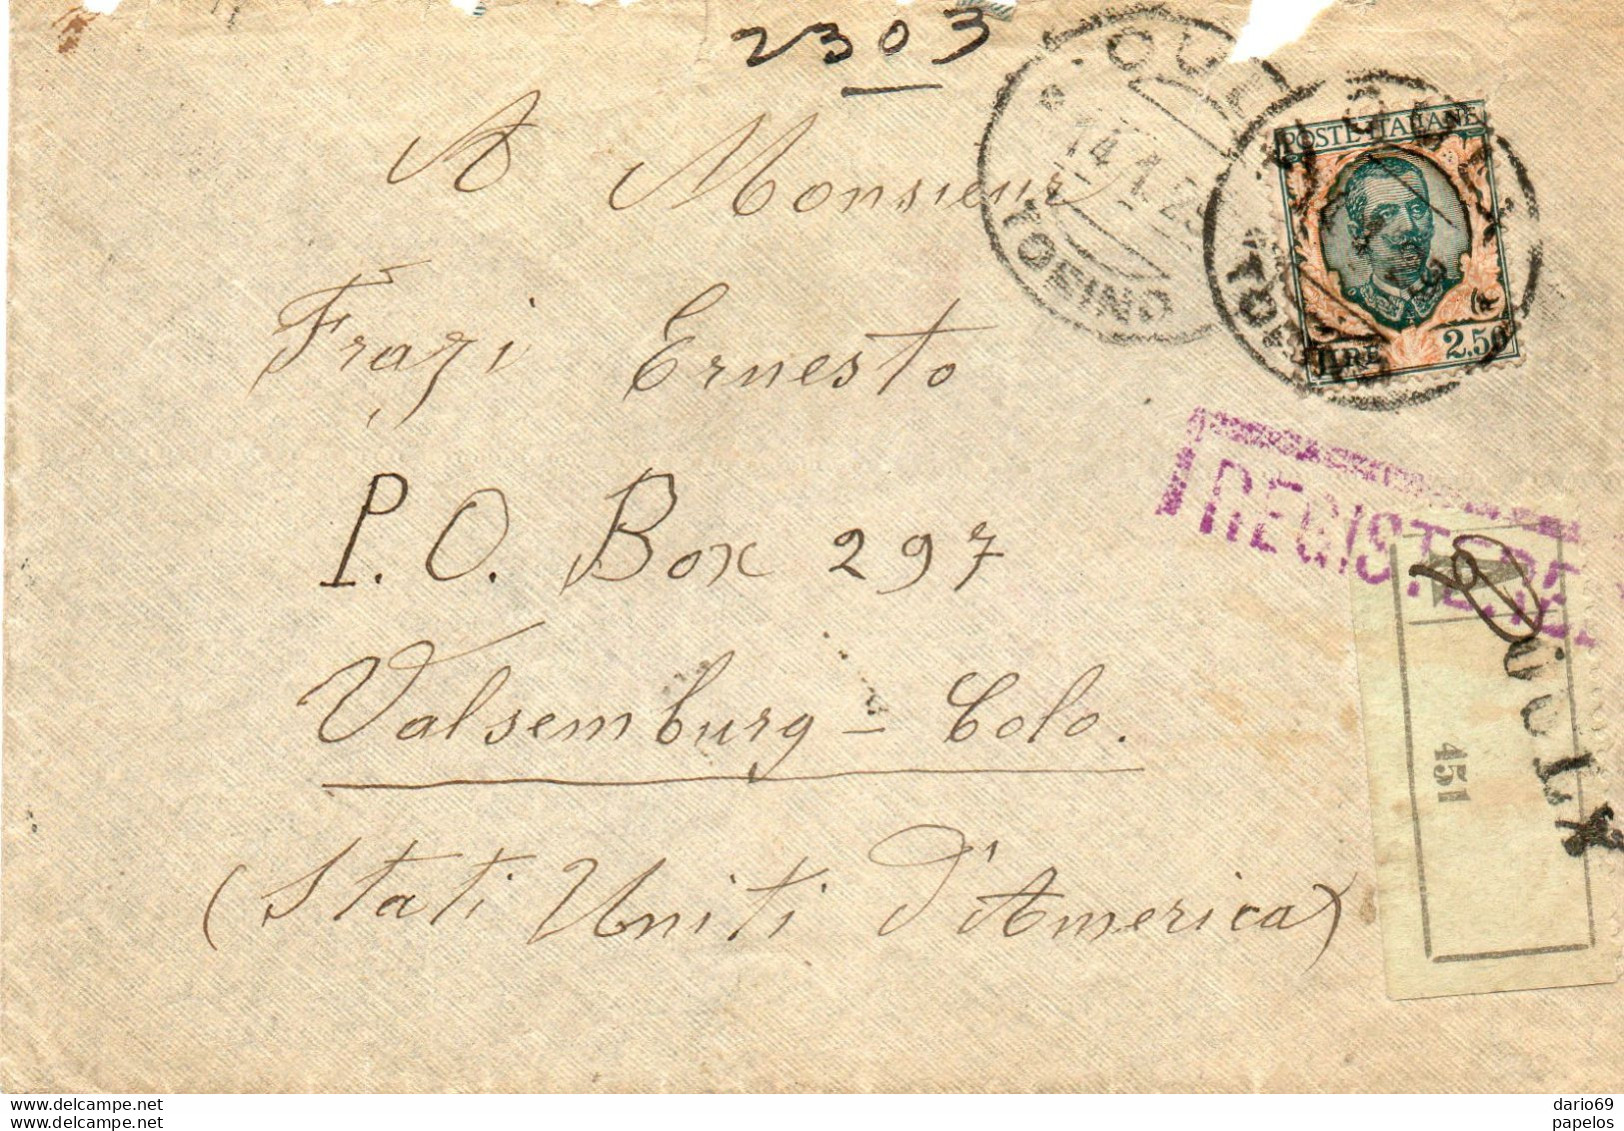 2303
14.1.2
TORINO
POSTE ITALIANE
LIRE 2.50
A Monsieur
Frazi Ernesto
REGISTERED
P.O. Box 297
Valsemburg - Colo.
451
(Stati Uniti d'America)
www.delcampe.net
www.delcampe.net
dario69
papelos